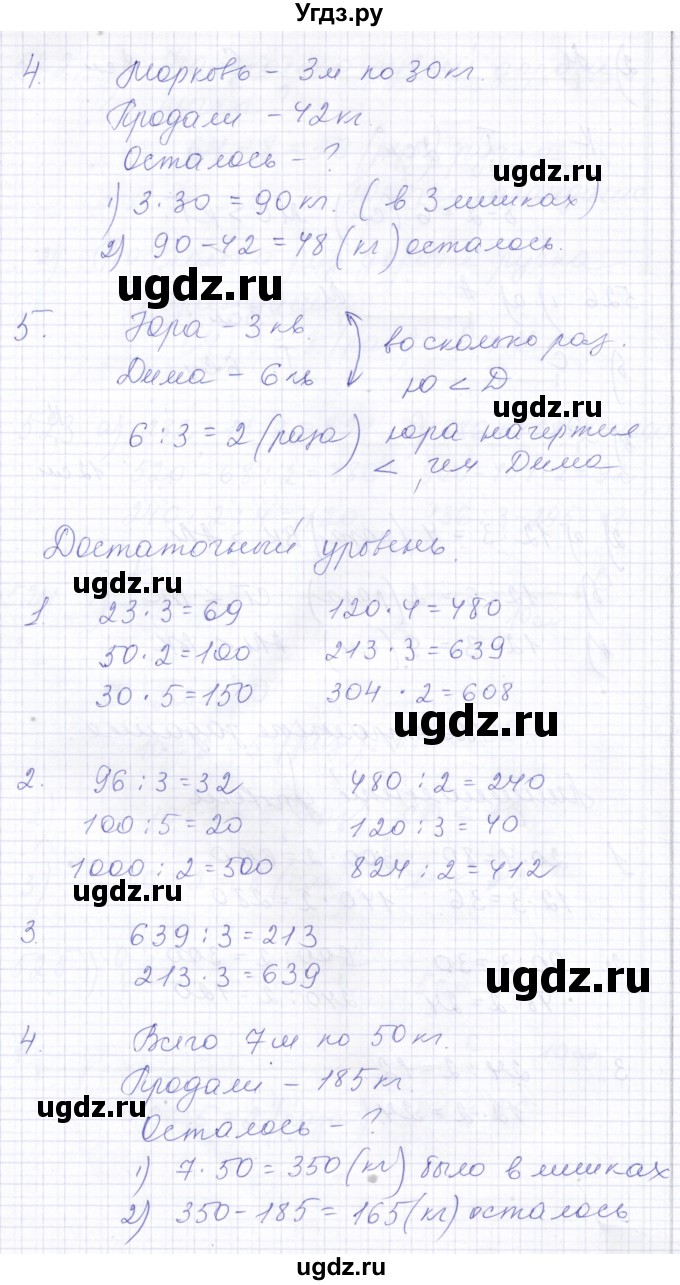 Угдз.ру
4. Морковь - 3м по 30кг.
Продали - 42кг.
Осталось - ?
ugdz.ru
1) 3·30 = 90кг. (в 3 мешках)
2) 90-42 = 48 (кг) осталось.
ugdz.ru
5. Юра - 3 кв. во сколько раз.
Дима - 6 кв ю < Д
ugdz.ru
6 : 3 = 2 (раза) юра начертил
< , чем Дима
Достаточный уровень.
ugdz.ru
1. 23·3=69 120·4=480
50·2=100 213·3=639
30·5=150 304·2=608
ugdz.ru
2. 96:3=32 480:2=240
100:5=20 120:3=40
1000:2=500 824:2=412
ugdz.ru
3. 639:3=213
213·3=639
ugdz.ru
4. Всего 7м по 50кг.
Продали - 185кг.
ugdz.ru
Осталось - ?
1) 7·50=350(кг) было в мешках
2) 350-185=165(кг) осталось
ugdz.ru